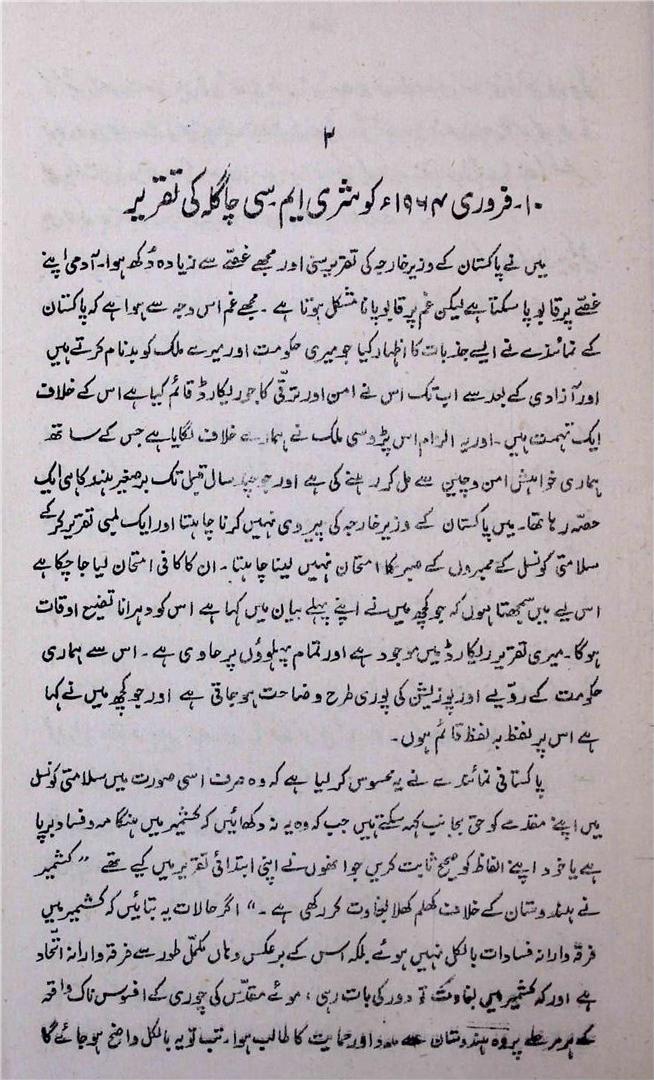 ۲
۱۰۔ فروری ۱۹۶۴ء کو شری ایم۔ سی چاگلہ کی تقریر
میں نے پاکستان کے وزیر خارجہ کی تقریر سنی اور مجھے غصّے سے زیادہ دُکھ ہوا۔ آدمی اپنے
غصّے پر قابو پا سکتا ہے لیکن غم پر قابو پانا مشکل ہوتا ہے۔ مجھے غم اس وجہ سے ہوا ہے کہ پاکستان
کے نمائندے نے ایسے جذبات کا اظہار کیا جو میری حکومت اور میرے ملک کو بدنام کرتے ہیں
اور آزادی کے بعد سے اب تک اس نے امن اور ترقی کا جو ریکارڈ قائم کیا ہے اس کے خلاف
ایک تہمت ہیں۔ اور یہ الزام اس پڑوسی ملک نے ہمارے خلاف لگایا ہے جس کے ساتھ
ہماری خواہش امن و چین سے مل کر رہنے کی ہے اور جو چند سال قبل تک برصغیر ہند کا ہی ایک
حصّہ رہا تھا۔ میں پاکستان کے وزیر خارجہ کی پیروی نہیں کرنا چاہتا اور ایک لمبی تقریر کر کے
سلامتی کونسل کے ممبروں کے صبر کا امتحان نہیں لینا چاہتا۔ ان کا کافی امتحان لیا جا چکا ہے
اس لیے میں سمجھتا ہوں کہ جو کچھ میں نے اپنے پہلے بیان میں کہا ہے اس کو دہرانا تضیع اوقات
ہوگا۔ میری تقریر ریکارڈ میں موجود ہے اور تمام پہلوؤں پر حاوی ہے۔ اس سے ہماری
حکومت کے رویے اور پوزیشن کی پوری طرح وضاحت ہو جاتی ہے اور جو کچھ میں نے کہا
ہے اس پر لفظ بہ لفظ قائم ہوں۔
پاکستانی نمائندے نے یہ محسوس کر لیا ہے کہ وہ صرف اسی صورت میں سلامتی کونسل
میں اپنے مقدمے کو حق بجانب کہہ سکتے ہیں جب کہ وہ یہ نہ دکھائیں کہ کشمیر میں ہنگامہ و فساد برپا
ہے یا خود اپنے الفاظ کو صحیح ثابت کریں جو انھوں نے اپنی ابتدائی تقریر میں کہے تھے "کشمیر
نے ہندوستان کے خلاف کھلم کھلا بغاوت کر رکھی ہے۔" اگر حالات یہ بتائیں کہ کشمیر میں
فرقہ وارانہ فسادات بالکل نہیں ہوئے بلکہ اس کے برعکس وہاں مکمّل طور سے فرقہ وارانہ اتحاد
ہے اور کہ کشمیر میں بغاوت تو دور کی بات رہی، موئے مقدّس کی چوری کے افسوس ناک واقعہ
کے ہر مرحلے پر وہ ہندوستان سے مدد اور حمایت کا طالب ہوا۔ تب تو یہ بالکل واضح ہو جائے گا